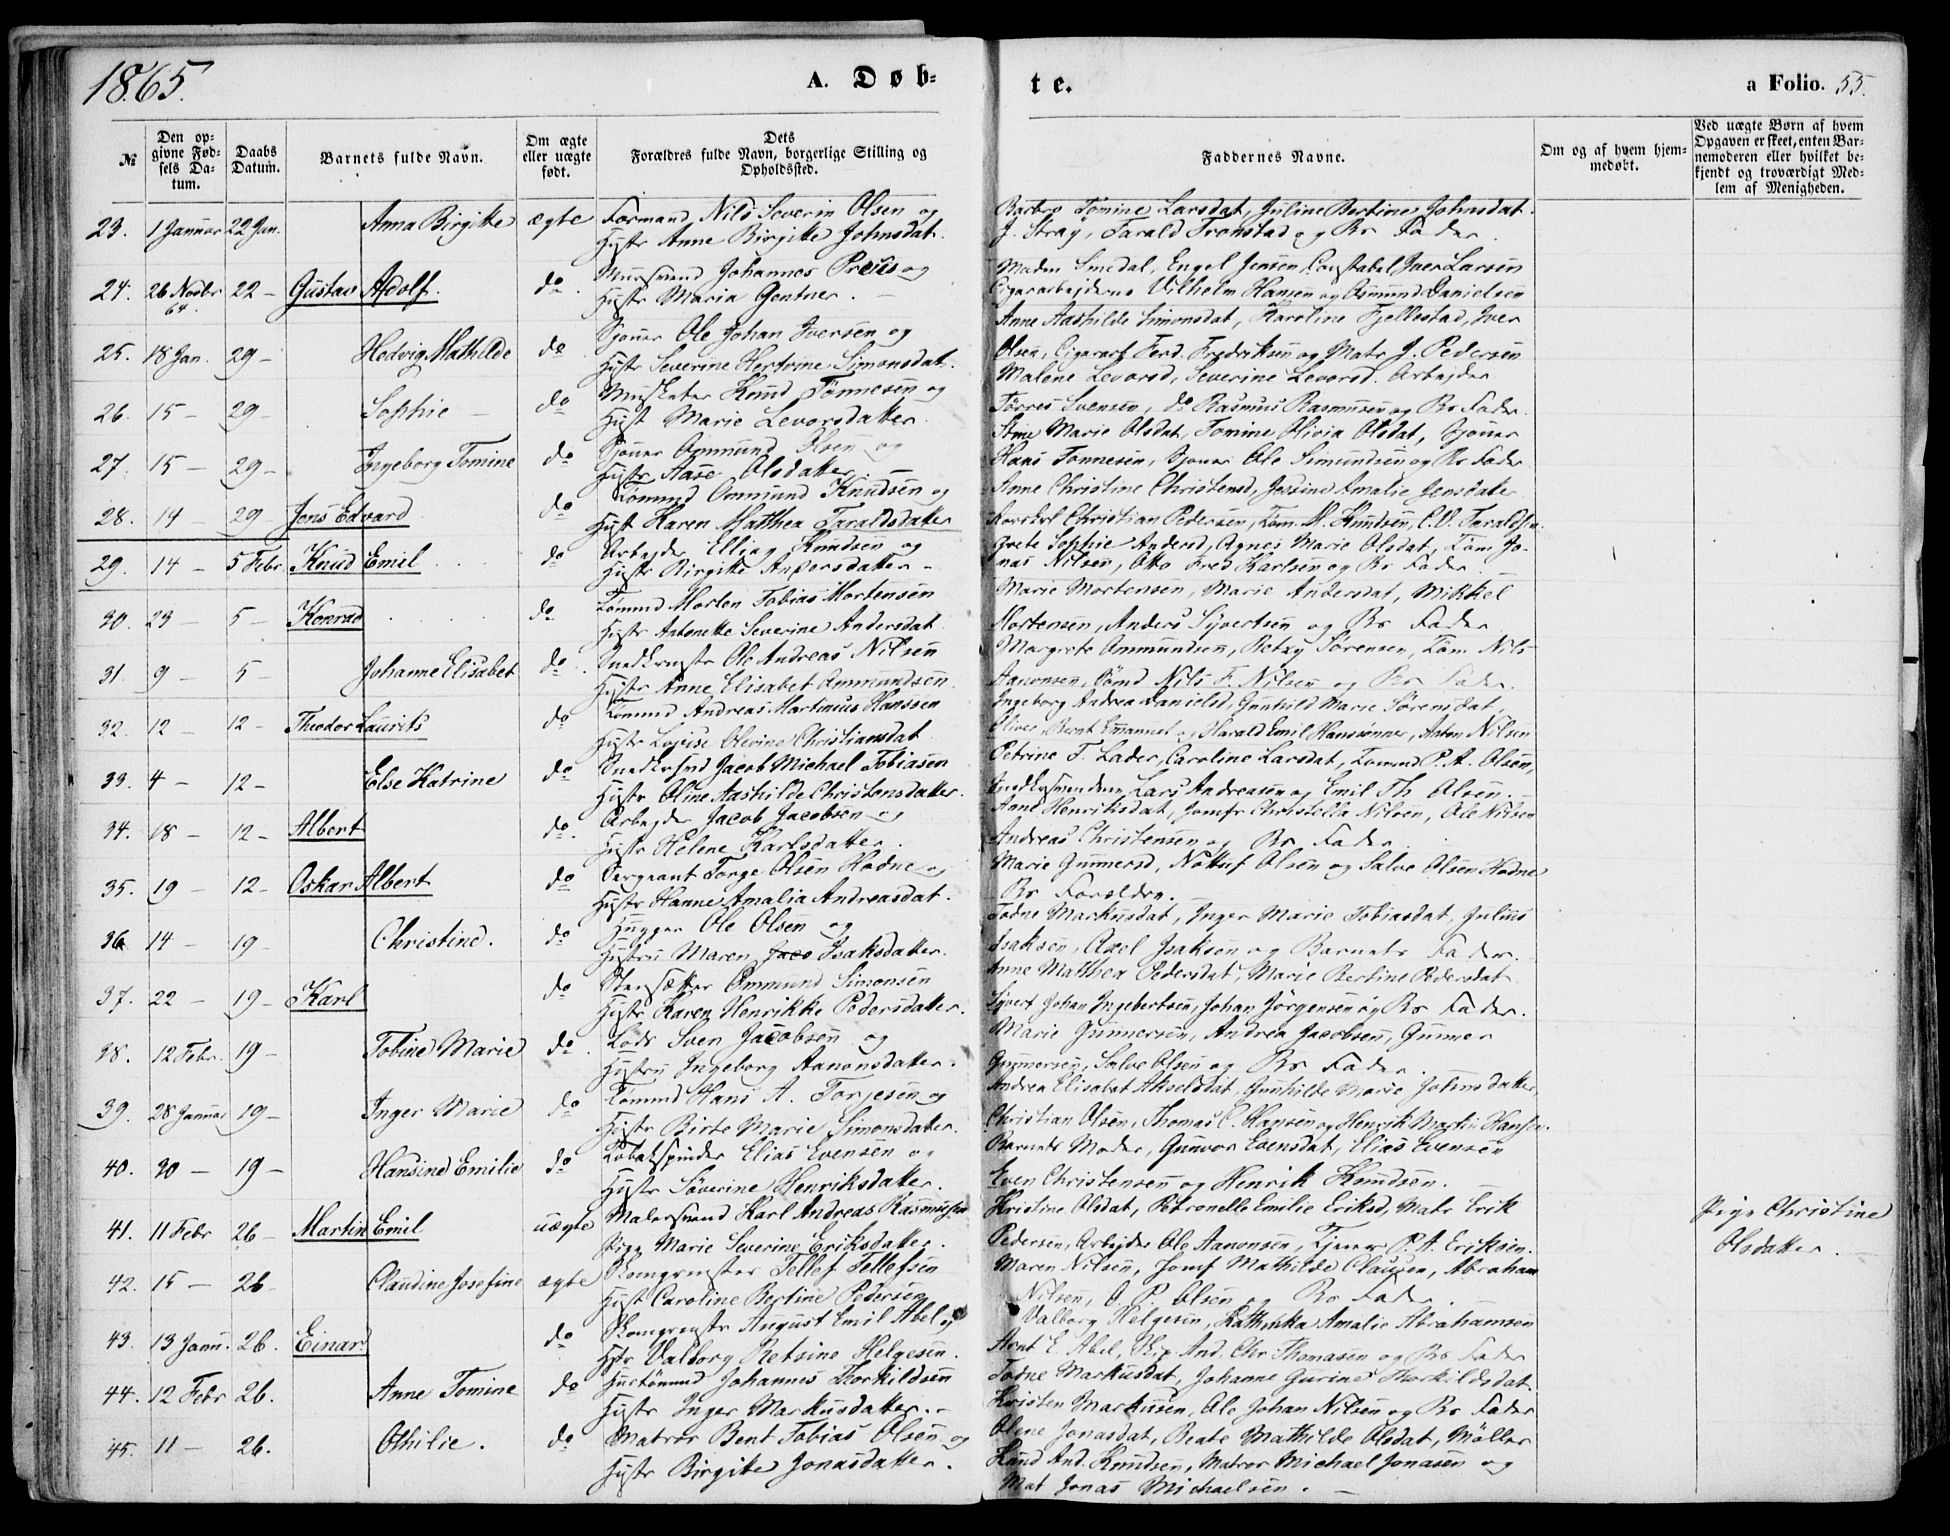 1865.
A. Døb-
te.
a Folio. 55.
№
Den op-
givne Fød-
sels Da-
tum.
Daabs
Datum.
Barnets fulde Navn.
Om ægte
eller uægte
født.
Dets
Forældres fulde Navn, borgerlige Stilling og
Opholdssted.
Faddernes Navne.
Om og af hvem hjem-
medøbt.
Ved uægte Børn af hvem
Opgaven er skeet, enten Bar-
nemoderen eller hvilket be-
kjendt og troværdigt Med-
lem af Menigheden.
23. 1 Januar 22 Jan. Anna Birgitte ægte Formand Nils Severin Olsen og
Hustr Anne Birgitte Johnsdat.
Barbro Tomine Larsdat, Juline Bertine Johnsdat.
J. Stray, Tarald Tronstad og Bs Fader.
24. 26 Novbr 64. 22 - Gustav Adolf. do. Murswend Johannes Preus og
Hustr Maria Gentner. -
Madm Smedal, Engel Jensen, Constabel Iver Larsen
Cigararbejderne Vilhelm Hansen og Osmund Danielsen
25. 18 Jan. 29 - Hedvig Mathilde do Sjouer Ole Johan Iversen og
Hustr Severine Hertvine Simonsdat.
Anne Aashilde Simonsdat, Karoline Fjellestad, Iver
Olsen, Cigararb Ferd. Fredriksen og Matr J. Pedersen
26. 15 - 29 - Sophie - do Musketer Knud Tønnesen og
Hust Marie Levorsdatter.
Malene Levorsd, Severine Levorsd. Arbejder
Tørres Svensen, do Rasmus Rasmussen og Bs Fader.
27. 15 - 29 - Ingeborg Tomine do Sjouer Ommund Olsen og
Hustr Aase Olsdatter. -
Stine Marie Olsdat, Tomine Olivia Olsdat, Sjouer
Hans Tønnesen, Sjouer Ole Simundsen og Bs Fader
28. 14 - 29 - Jens Edvard do Tømmd Ommund Knudsen og
Hust Karen Matthea Taraldsdatter
Anne Christine Christensd, Jessine Amalie Jensdatter
Christian Pedersen, Tøm. M. Knudsen, C. O. Taraldsen.
29. 14 - 5 Febr. Knud Emil do Arbejder Elling Knudsen og
Hustr Birgitte Andersdatter -
Grete Sophie Andersd, Agnes Marie Olsdat, Tøm Jo-
nas Nilsen, Otto Fred Karlsen og Bs Fader.
30. 23 - 5 - Konrad do Tømmd Morten Tobias Mortensen
Hustr Antonette Severine Andersdat.
Marie Mortensen, Marie Andersdat, Mikkel
Mortensen, Anders Syvertsen og Bs Fader.
31. 9 - 5 - Johanne Elisabet do. Snedkermstr Ole Andreas Nilsen
Hustr Anne Elisabet Ommundsen.
Margrete Ommundsen, Betzy Sørensen, Tøm. Nils
Aanonsen, Tømd Nils F. Nilsen og Bs Fader.
32. 12 - 12 - Theodor Laurits do Tømmd Andreas Martinius Hanssen
Hustr Lovise Olevine Christiansdat.
Ingeborg Andrea Danielsd, Gunhild Marie Sørensdat,
Oliver Bernt Emanuel og Harald Emil Hanssønner, Anton Nilsen
33. 4 - 12 - Else Katrine do Snedkersvd Jacob Michael Tobiasen
Hustr Oline Aashilde Christensdatter.
Petrine T. Lader, Caroline Larsdat, Tømmd P. A. Olsen,
Snedkersvendene Lars Andreasen og Emil Th. Olsen. -
34. 18 - 12 - Albert do. Arbejder Jacob Jacobsen og
Hustr Helene Karlsdatter.
Anne Henriksdat, Jomfr Christella Nilsen, Ole Nilsen
Andreas Christensen og Bs Fader.
35. 19 - 12 - Oskar Albert do Sergeant Torge Olsen Hodne og
Hustr Hanne Amalia Andreasdat.
Marie Gunnersd, Nottuf Olsen og Salve Olsen Hodne
Bs Forældre.
36 14 - 19 - Christine. do Hugger Ole Olsen og
Hustru Maren Isaksdatter.
Todne Markusdat, Inger Marie Tobiasdat, Julius
Isaksen, Axel Isaksen og Barnets Fader. -
37. 22 - 19 - Karl do Stensætter Ommund Simonsen
Hustr Karen Henrikke Pedersdatter.
Anne Matthea Pedersdat, Marie Bertine Pedersdat
Syvert Johan Ingebertsen, Johan Jørgensen og Bs Fader.
38. 12 Febr. 19 - Tobine Marie do. Lods Sven Jacobsen og
Hustru Ingeborg Aanonsdatter.
Marie Gunnersen, Andrea Jacobsen, Gunner
Gunnersen, Salve Olsen og Bs Fader. -
39. 28 Januar 19 - Inger Marie do Tømmd Hans A. Torjesen og
Hustr Birte Marie Simonsdatter.
Andrea Elisabet Akselsdat, Gunhilde Marie Johnsdatter,
Christian Olsen, Thomas C. Hansen og Henrik Martin Hansen.
40. 20 - 19 - Hansine Emilie do Tobakspinder Elias Evensen og
Hustr Severine Henriksdatter.
Barnets Moder, Gunvor Evensdat, Elias Evensen
Even Christensen og Henrik Knudsen. -
41. 11 Febr 26 - Martin Emil uægte Malersvend Karl Andreas Rasmussen
Pige Marie Severine Eriksdatter.
Kristine Olsdat, Petronelle Emilie Eriksd, Matr Erik
Pedersen, Arbejder Ole Aanonsen, Tjener P. A. Eriksen.
Pige Christine
Olsdatter. -
42. 15 - 26 - Claudine Josefine ægte Skomgrmester Tellef Tellefsen
Hust Caroline Bertine Pedersen
Maren Nilsen, Jomf Mathilde Clausen, Abraham
Nilsen, O. P. Olsen og Bs Fader. -
43. 13 Janu. 26. Einar do Skomgrmstr August Emil Abel og
Hstr Valborg Retsine Helgesen.
Valborg Helgesen, Kathinka Amalie Abrahamsen
Arnt E. Abel, Skip. And. Chr Thomasen og Bs Fader
44. 12 Febr 26. Anne Tomine do Hustømmd Johannes Thorkildsen
Hustr Inger Markusdatter. -
Todne Markusdat, Johanne Gurine Thorkildsdat.
Kristen Markussen, Ole Johan Nilsen og Bs Fader
45. 11 - 26. Othilie. do Matros Bent Tobias Olsen og
Hustr Birgitte Jonasdatter.
Oline Jonasdat, Beate Mathilde Olsdat, Møller
Knud And. Knudsen, Matros Michael Jonasen og
Mat Jonas Michaelsen. -